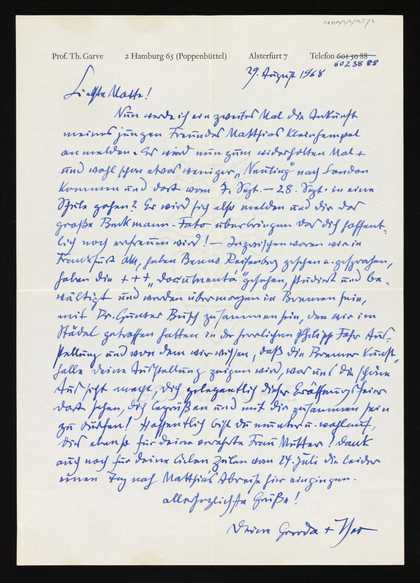 Prof. Th. Garve 2 Hamburg 65 (Poppenbüttel) Alsterfurt 7 Telefon 601 30 88
602 38 88
29. August 1968
Liebste Matte!
Nun werde ich ein zweites Mal die Ankunft
meines jungen Freundes Matthias Kleinhempel
anmelden. Er wird nun zum wiederholten Mal +
und wohl schon etwas weniger „ nach London
kommen und dort vom 7. Sept. – 28. Sept. in eine
Schule gehen! Er wird sich also melden und dir das
große Beckmann-Foto überbringen das dich hoffent-
lich noch erfreuen wird! – Inzwischen waren wir in
Frankfurt, haben Benno Reifenberg gesehen u. gesprochen,
haben die +++ „documenta" gesehen, studiert und be-
wältigt und werden übermorgen in Bremen sein,
mit Dr. Günter Busch zusammen sein, den wir im
Städel getroffen hatten in der herrlichen Philipp Fohr Aus-
stellung und von dem wir wissen, daß die Bremer Kunst-
halle deine Ausstellung zeigen wird, was uns die schöne
Aussicht macht, dich gelegentlich dieser Eröffnungsfeier
dort sehen, dich begrüßen und mit dir zusammen sein
zu dürfen! Hoffentlich bist du munter u. wohlauf,
dies ebenso für deine verehrte Frau Mutter! Dank
auch noch für deine lieben Zeilen vom 24. Juli die leider
einen Tag nach Matthias Abreise hier eingingen.
allerherzlichste Grüße!
Deine Gerda + Theo